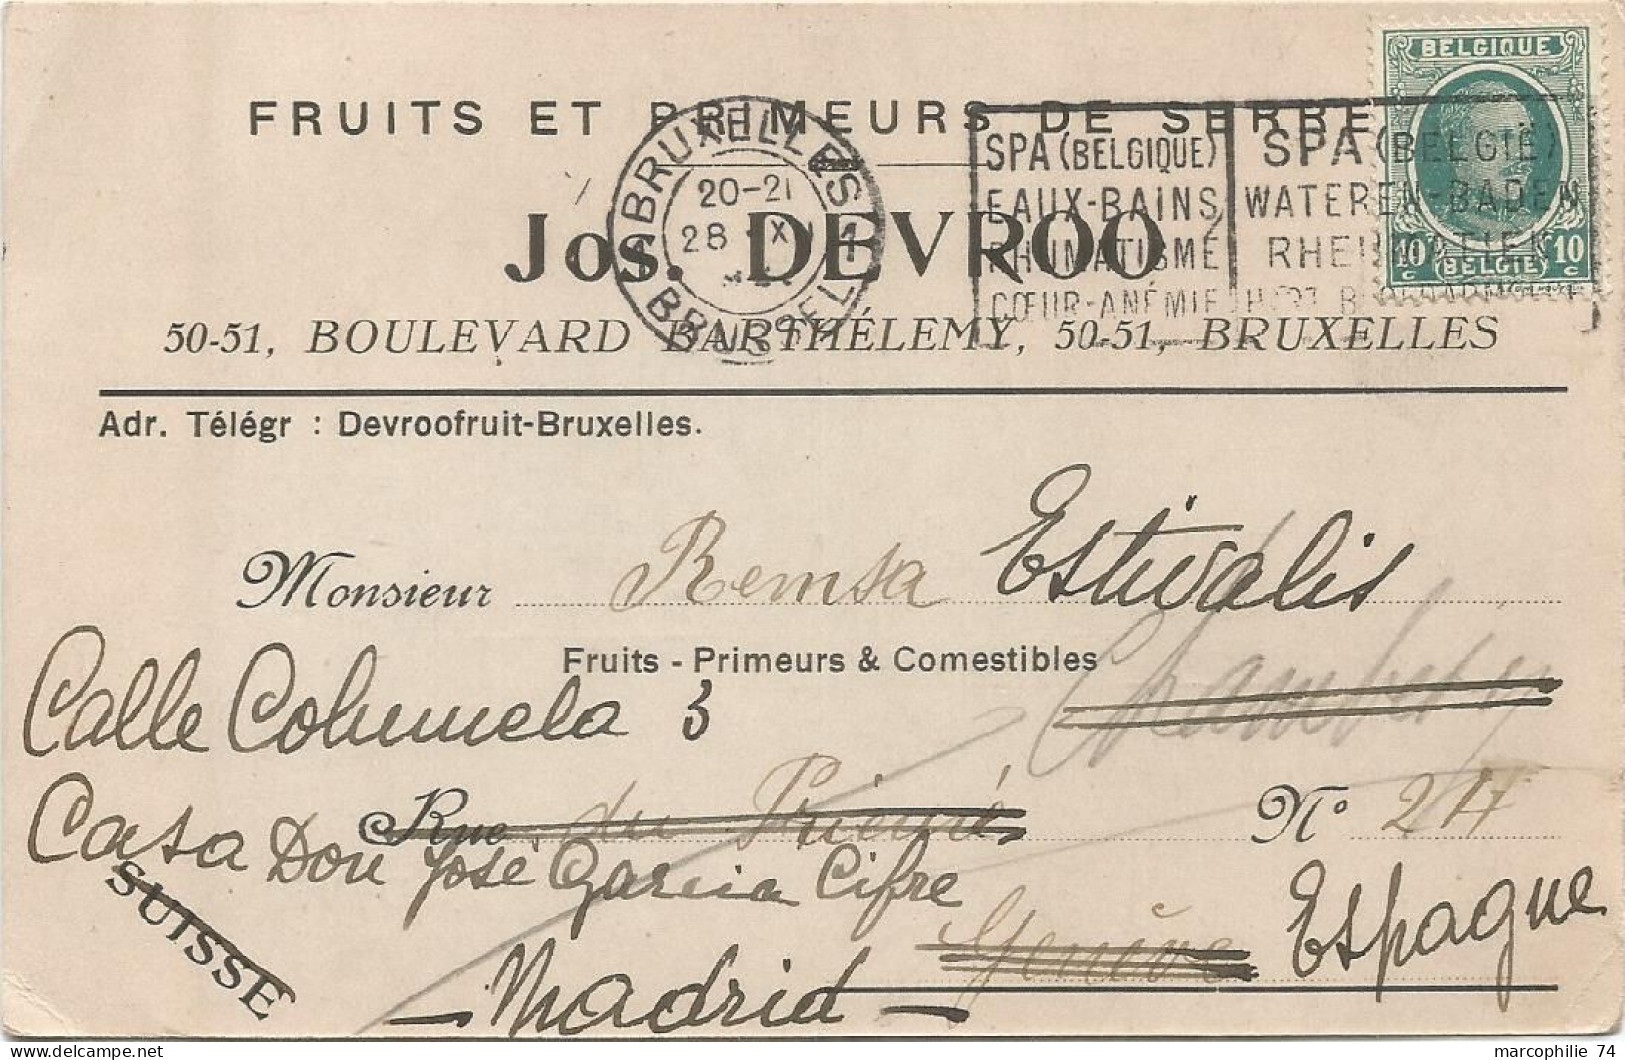 BELGIQUE
10 c 10 c
BELGIË
FRUITS ET PRIMEURS DE SERRE
BRUXELLES 1
20-21
28 XI
1 BRUSSEL
SPA (BELGIQUE)
EAUX-BAINS
RHUMATISME
CŒUR-ANÉMIE
SPA (BELGIË)
WATEREN-BADEN
RHEUMATIEK
Jos. DEVROO
50-51, BOULEVARD BARTHÉLEMY, 50-51, BRUXELLES
Adr. Télégr : Devroofruit-Bruxelles.
Monsieur Remsa Estivalis
Fruits - Primeurs & Comestibles
Chambery
Calle Columela 3
Rue du Prieuré N° 24
Casa Don José Garcia Cifre
SUISSE
Genève Espagne
- Madrid -
marcophilie 74